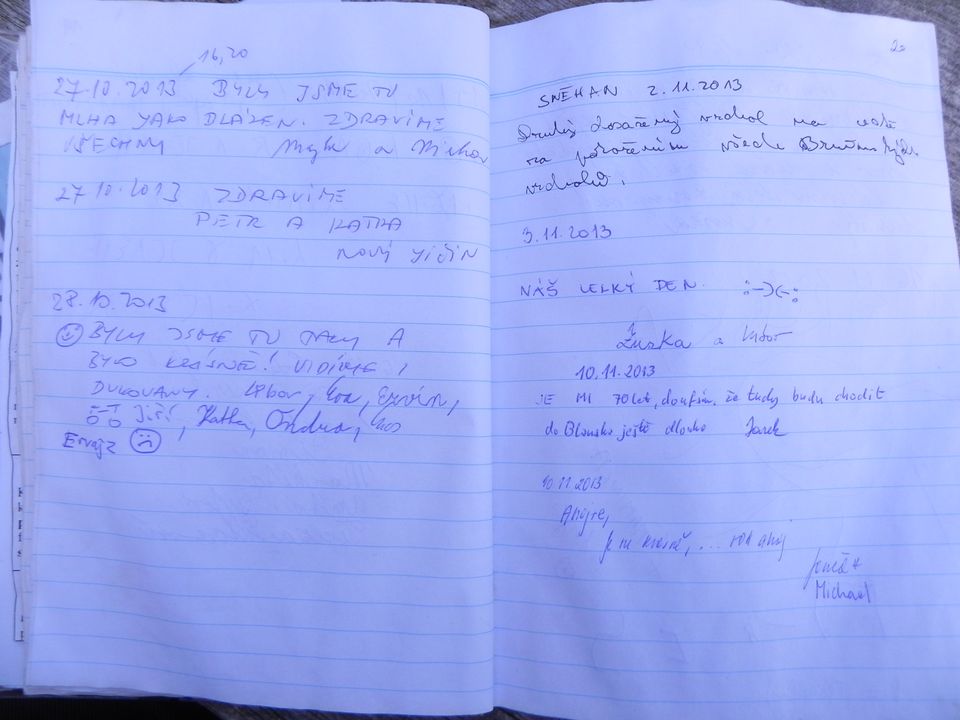 16,20
27.10.2013 BYLY JSME TU
MLHA JAKO BLÁZEN. ZDRAVÍME
VŠECHNY a
27.10.2013 ZDRAVÍME
PETR A KATKA
NOVÝ JIČÍN
28.10.2013
BYLY JSME TU TAKY A
BYLO KRÁSNĚ! VIDÍME I
DUKOVANY. Libor, Eva, Ervín,
Jiří, Katka, Ondra,
20
SNĚHAN 2.11.2013
Druhý dosažený vrchol na cestě
za pokořením všech
vrcholů.
3.11.2013
NÁŠ VELKÝ DEN. :-)(-:
Zuzka a Libor
10.11.2013
JE MI 70 let, doufám, že tudy budu chodit
do Blanska ještě dlouho Jarek
10.11.2013
je mi krásně, ...
Michael